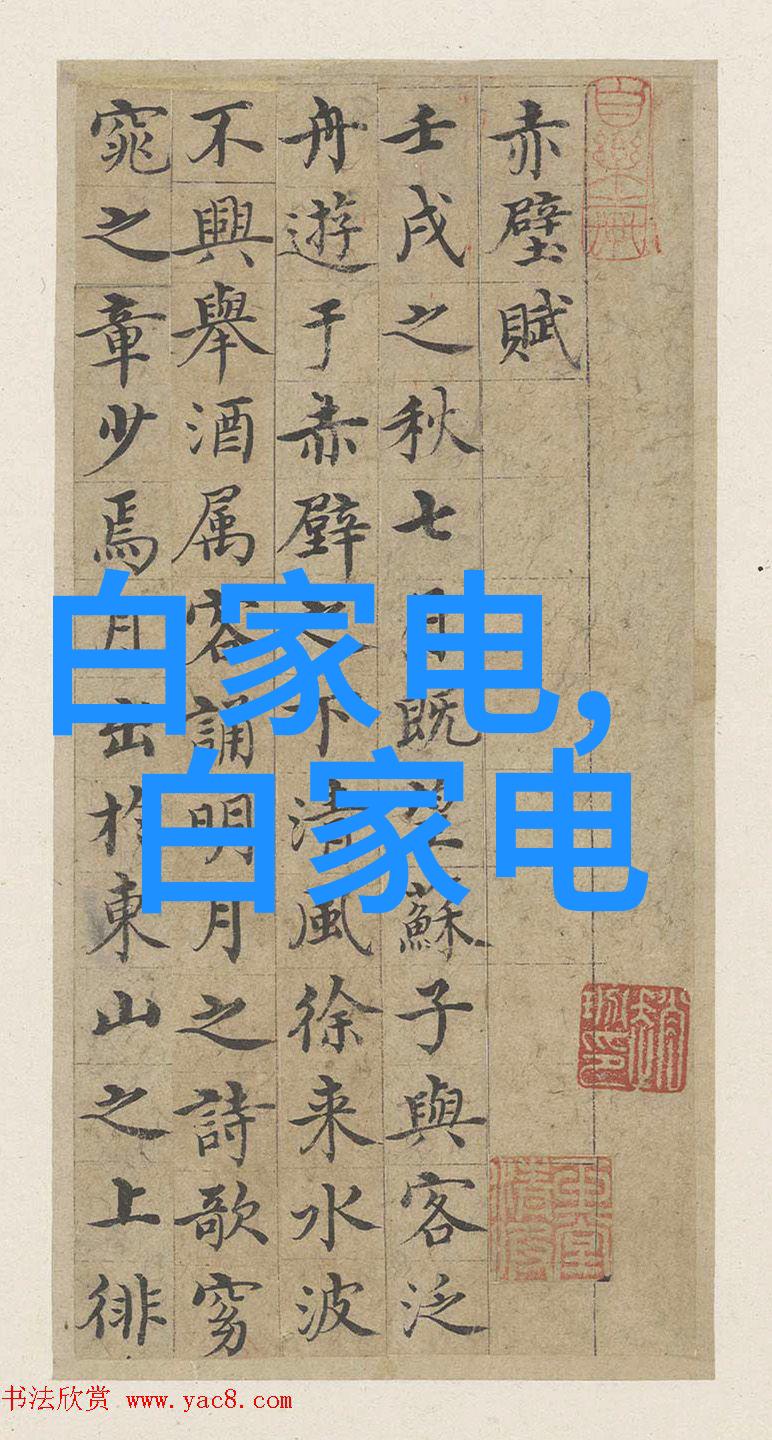 赤壁賦
壬戌之秋七月既望蘇子與客泛
舟遊于赤壁之下清風徐来水波
不興舉酒属客誦明月之詩歌窈
窕之章少焉月出於東山之上徘
白家电,
白家电
书法欣赏 www.yac8.com